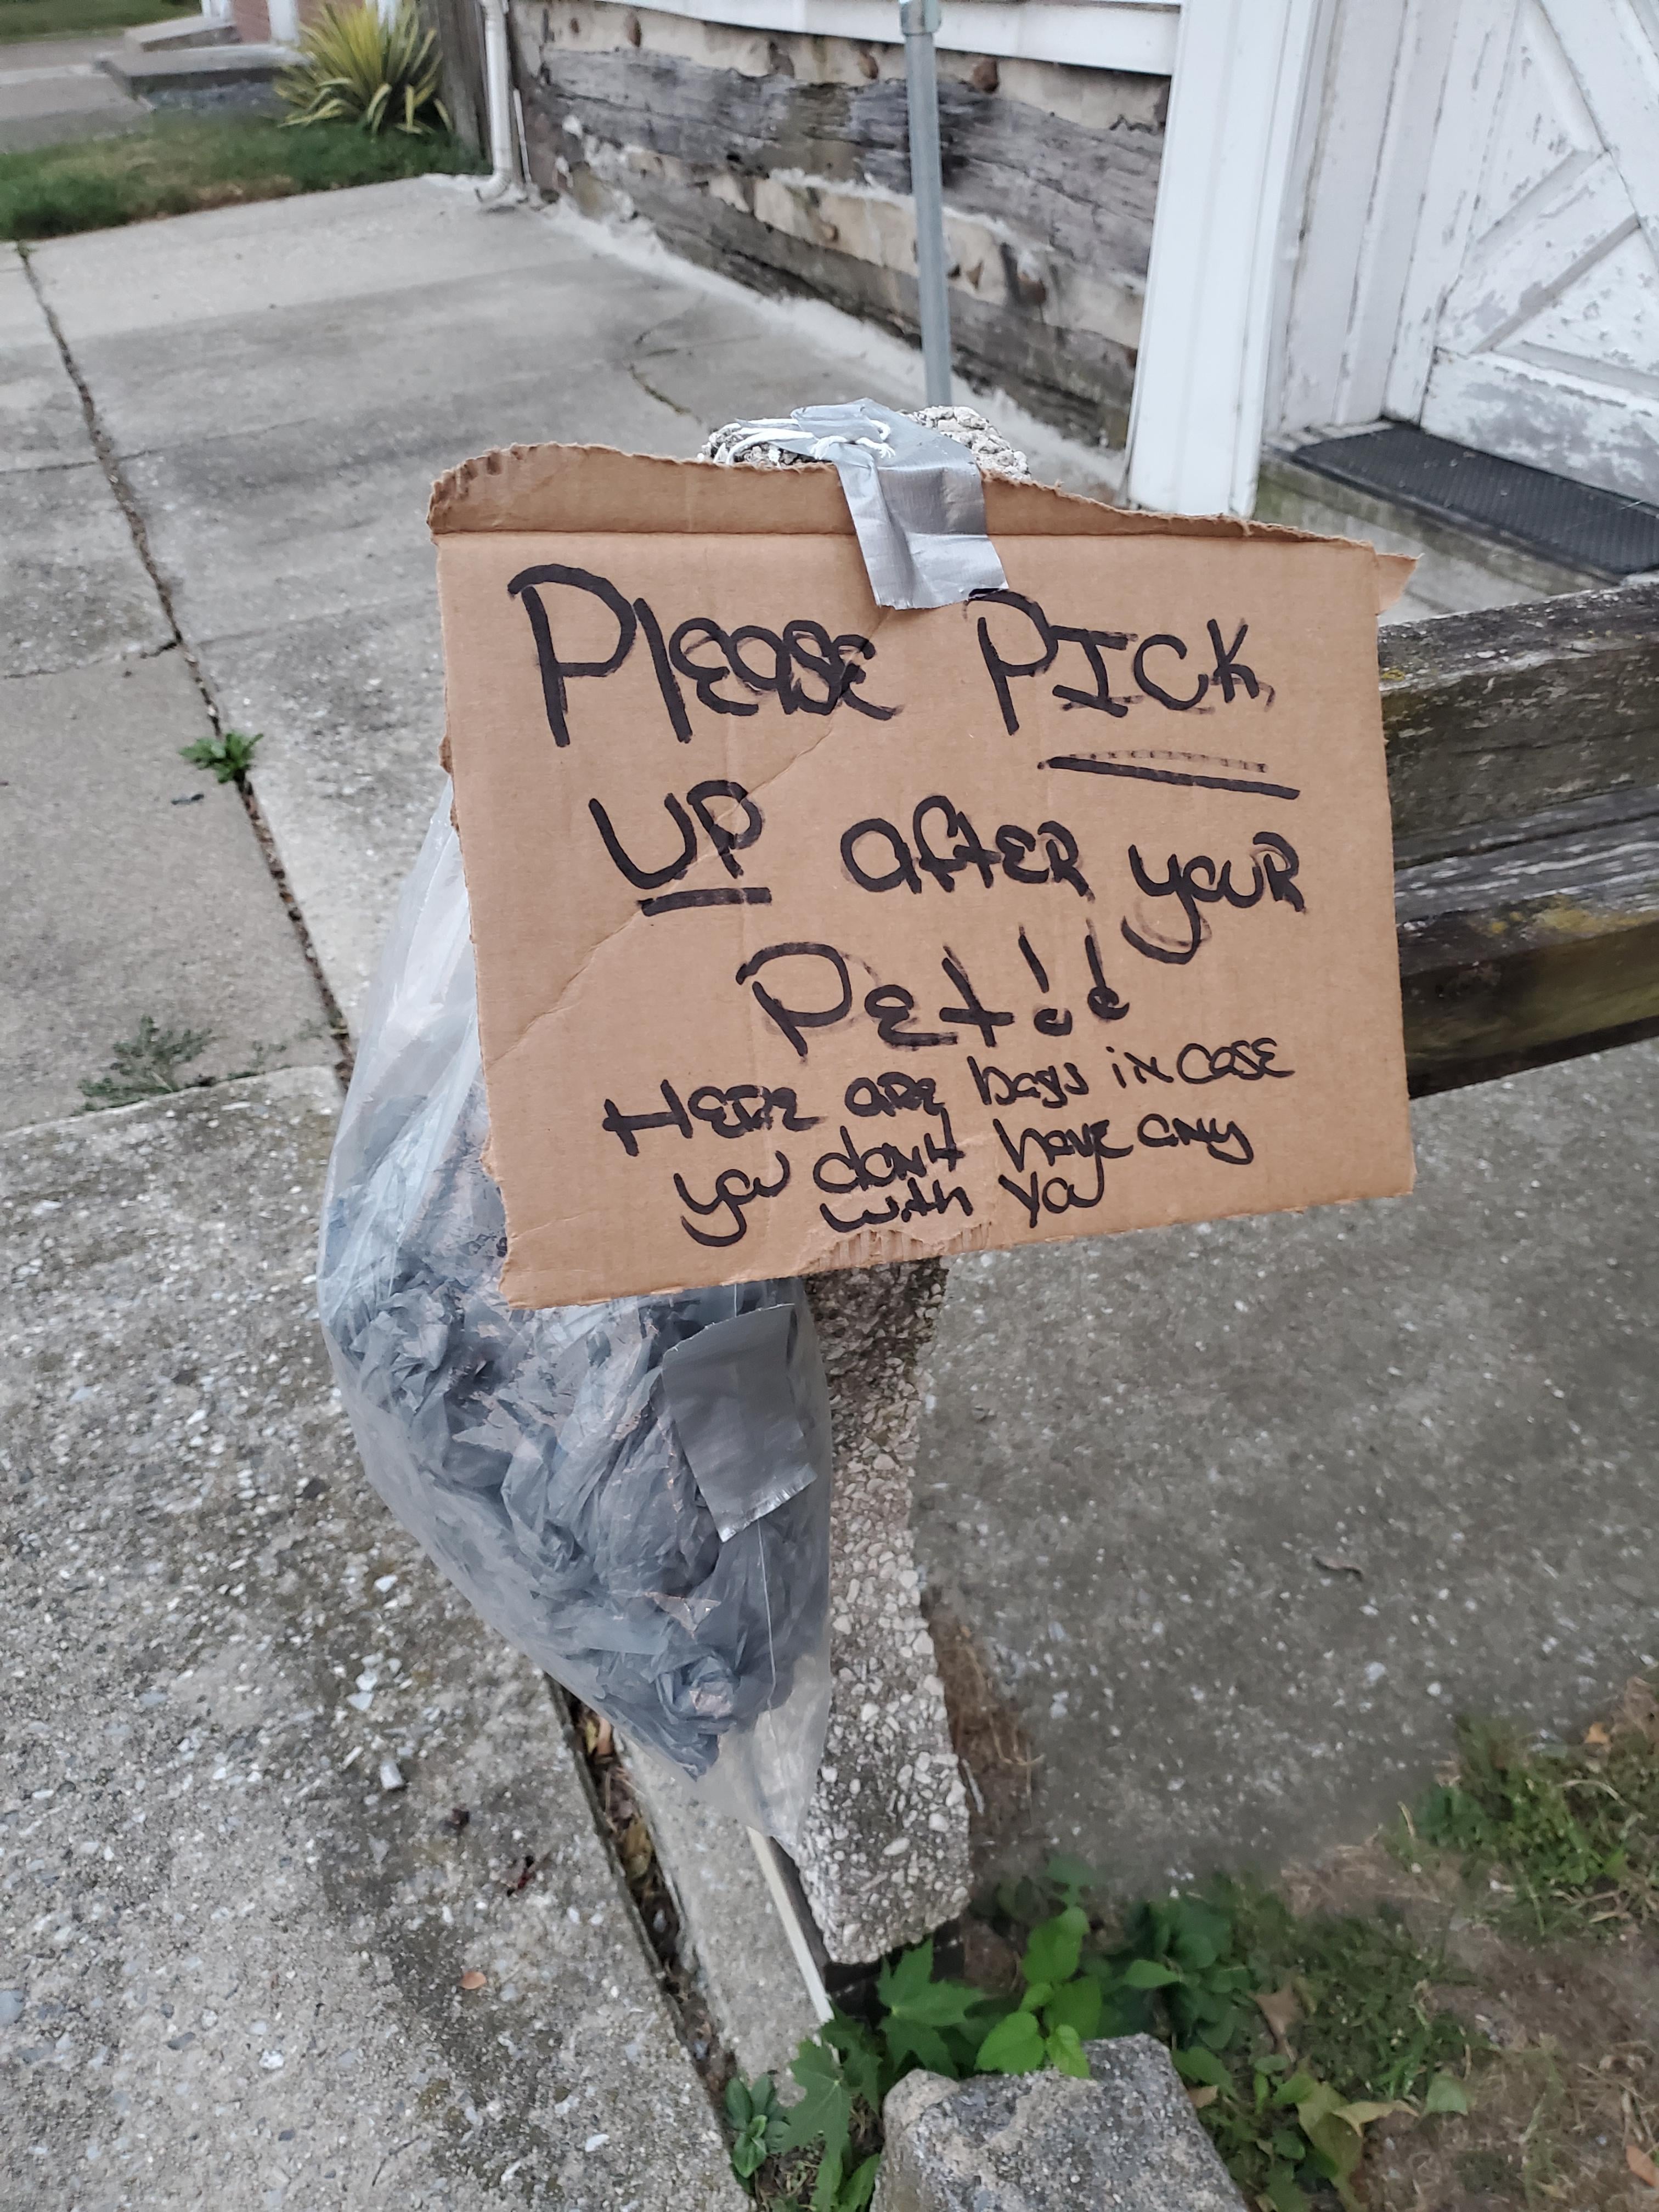 Please PICK
UP after your
Pet!!
Here are bags in case
you don't have any
with you